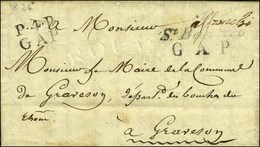 1826
P.4.P.
GAP
a Monsieur affranchi
GAP
Monsieur le Maire de la Commune
de Graveson, depart.t des bouches du
Rhone,
à Graveson